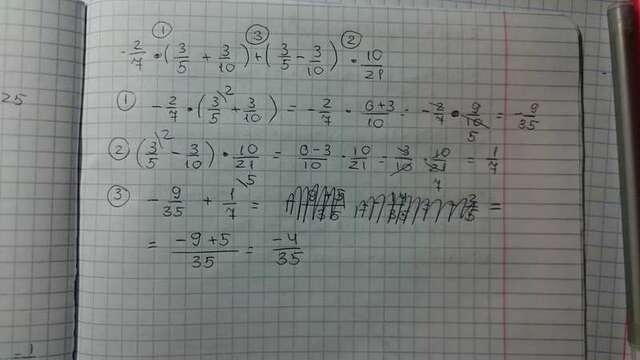 ① ③ ②
-2/7 · (3/5 + 3/10) + (3/5 - 3/10) · 10/21
25
① -2/7 · (3/5 \2 + 3/10) = -2/7 · 6+3/10 = -2/7 · 9/10 5 = -9/35
② (3/5 \2 - 3/10) · 10/21 = 6-3/10 · 10/21 = 3/10 · 10/21 7 = 1/7
③ -9/35 + 1/7 \5 = =
= -9+5/35 = -4/35